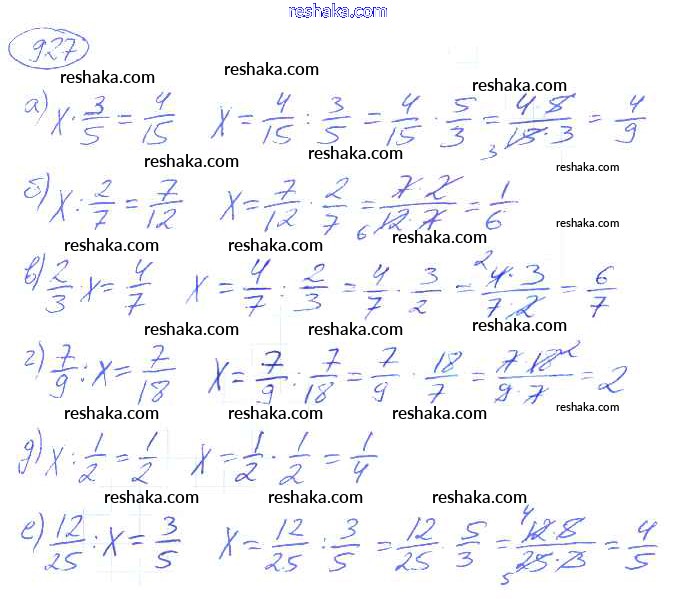 reshaka.com
927
reshaka.com reshaka.com reshaka.com
а) x · 3/5 = 4/15 x = 4/15 : 3/5 = 4/15 · 5/3 = 4·5/15·3 3 = 4/9
reshaka.com reshaka.com reshaka.com
б) x : 2/7 = 7/12 x = 7/12 · 2/7 = 7·2/12·7 6 = 1/6
reshaka.com reshaka.com reshaka.com
в) 2/3 · x = 4/7 x = 4/7 : 2/3 = 4/7 · 3/2 = 2 4·3/7·2 = 6/7
reshaka.com reshaka.com reshaka.com
г) 7/9 : x = 7/18 x = 7/9 : 7/18 = 7/9 · 18/7 = 7·18 2/9·7 = 2
reshaka.com reshaka.com reshaka.com reshaka.com
д) x : 1/2 = 1/2 x = 1/2 · 1/2 = 1/4
reshaka.com reshaka.com reshaka.com
е) 12/25 : x = 3/5 x = 12/25 : 3/5 = 12/25 · 5/3 = 4 12·5/25·3 5 = 4/5
reshaka.com reshaka.com reshaka.com